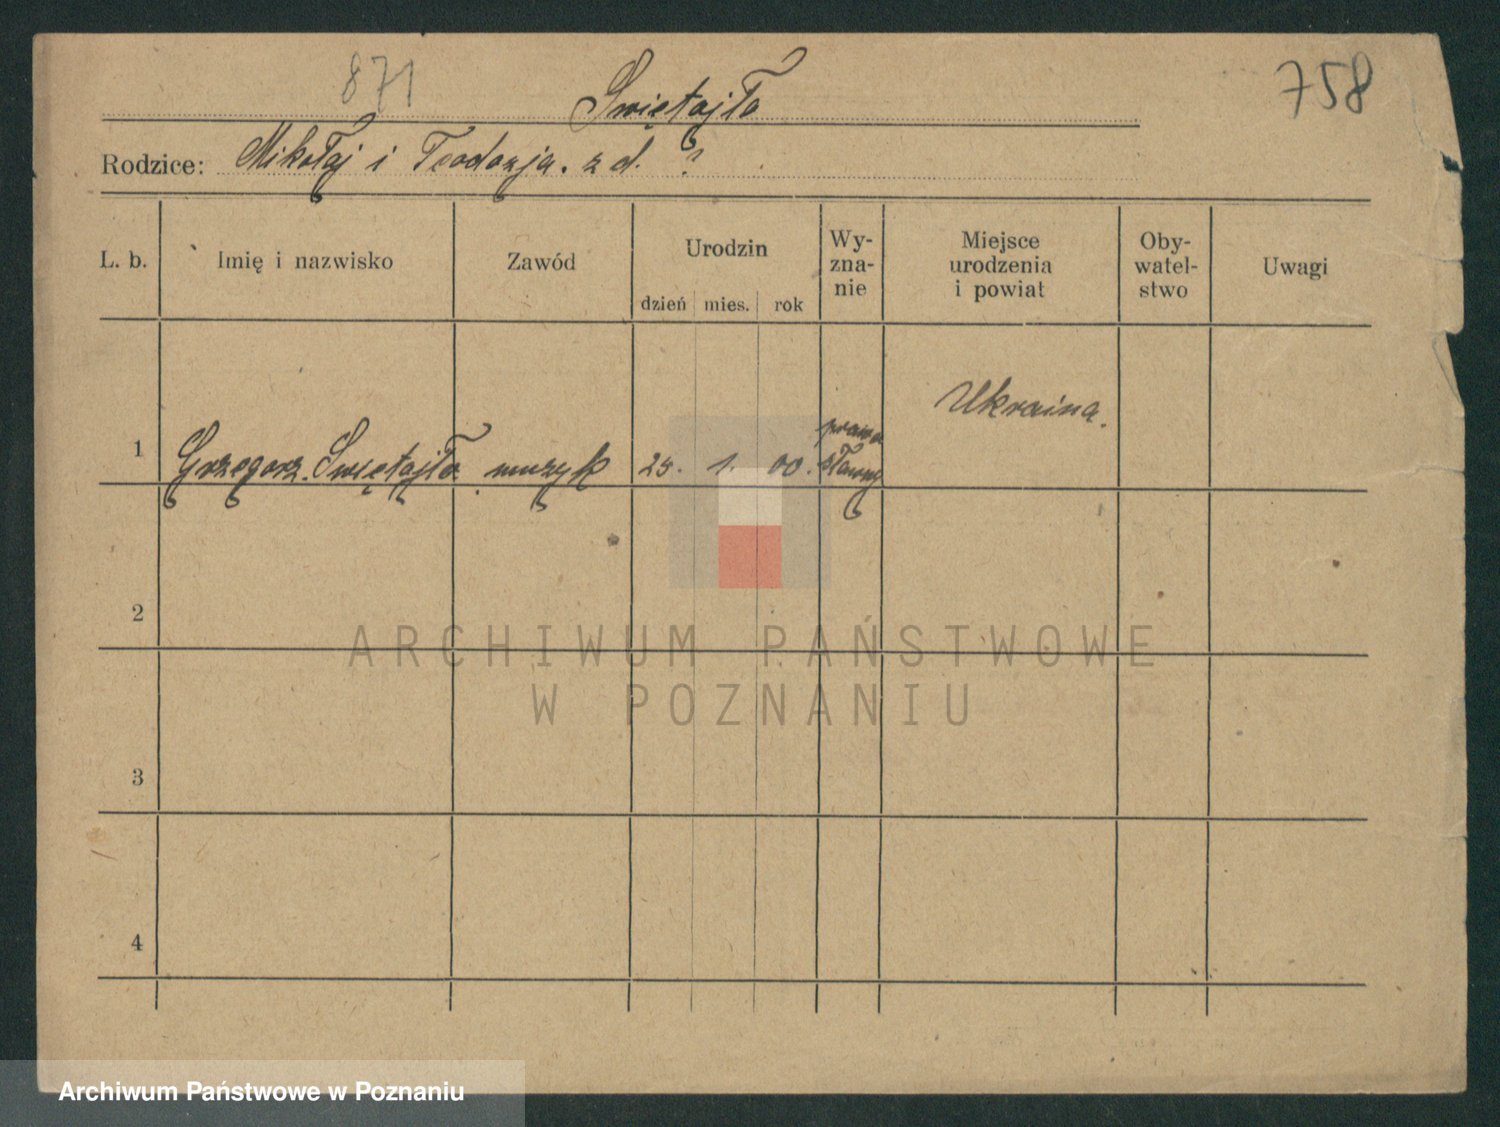 871
758
Swiętajło
Rodzice: Mikołaj i Teodozja. z d. ?
L. b. Imię i nazwisko Zawód Urodzin dzień mies. rok Wy- zna- nie Miejsce urodzenia i powiat Oby- watel- stwo Uwagi
Ukraina.
1 Grzegorz Swiętajło muzyk 25. 1. 00. prawo sławny
2
ARCHIWUM PAŃSTWOWE
W POZNANIU
3
4
Archiwum Państwowe w Poznaniu